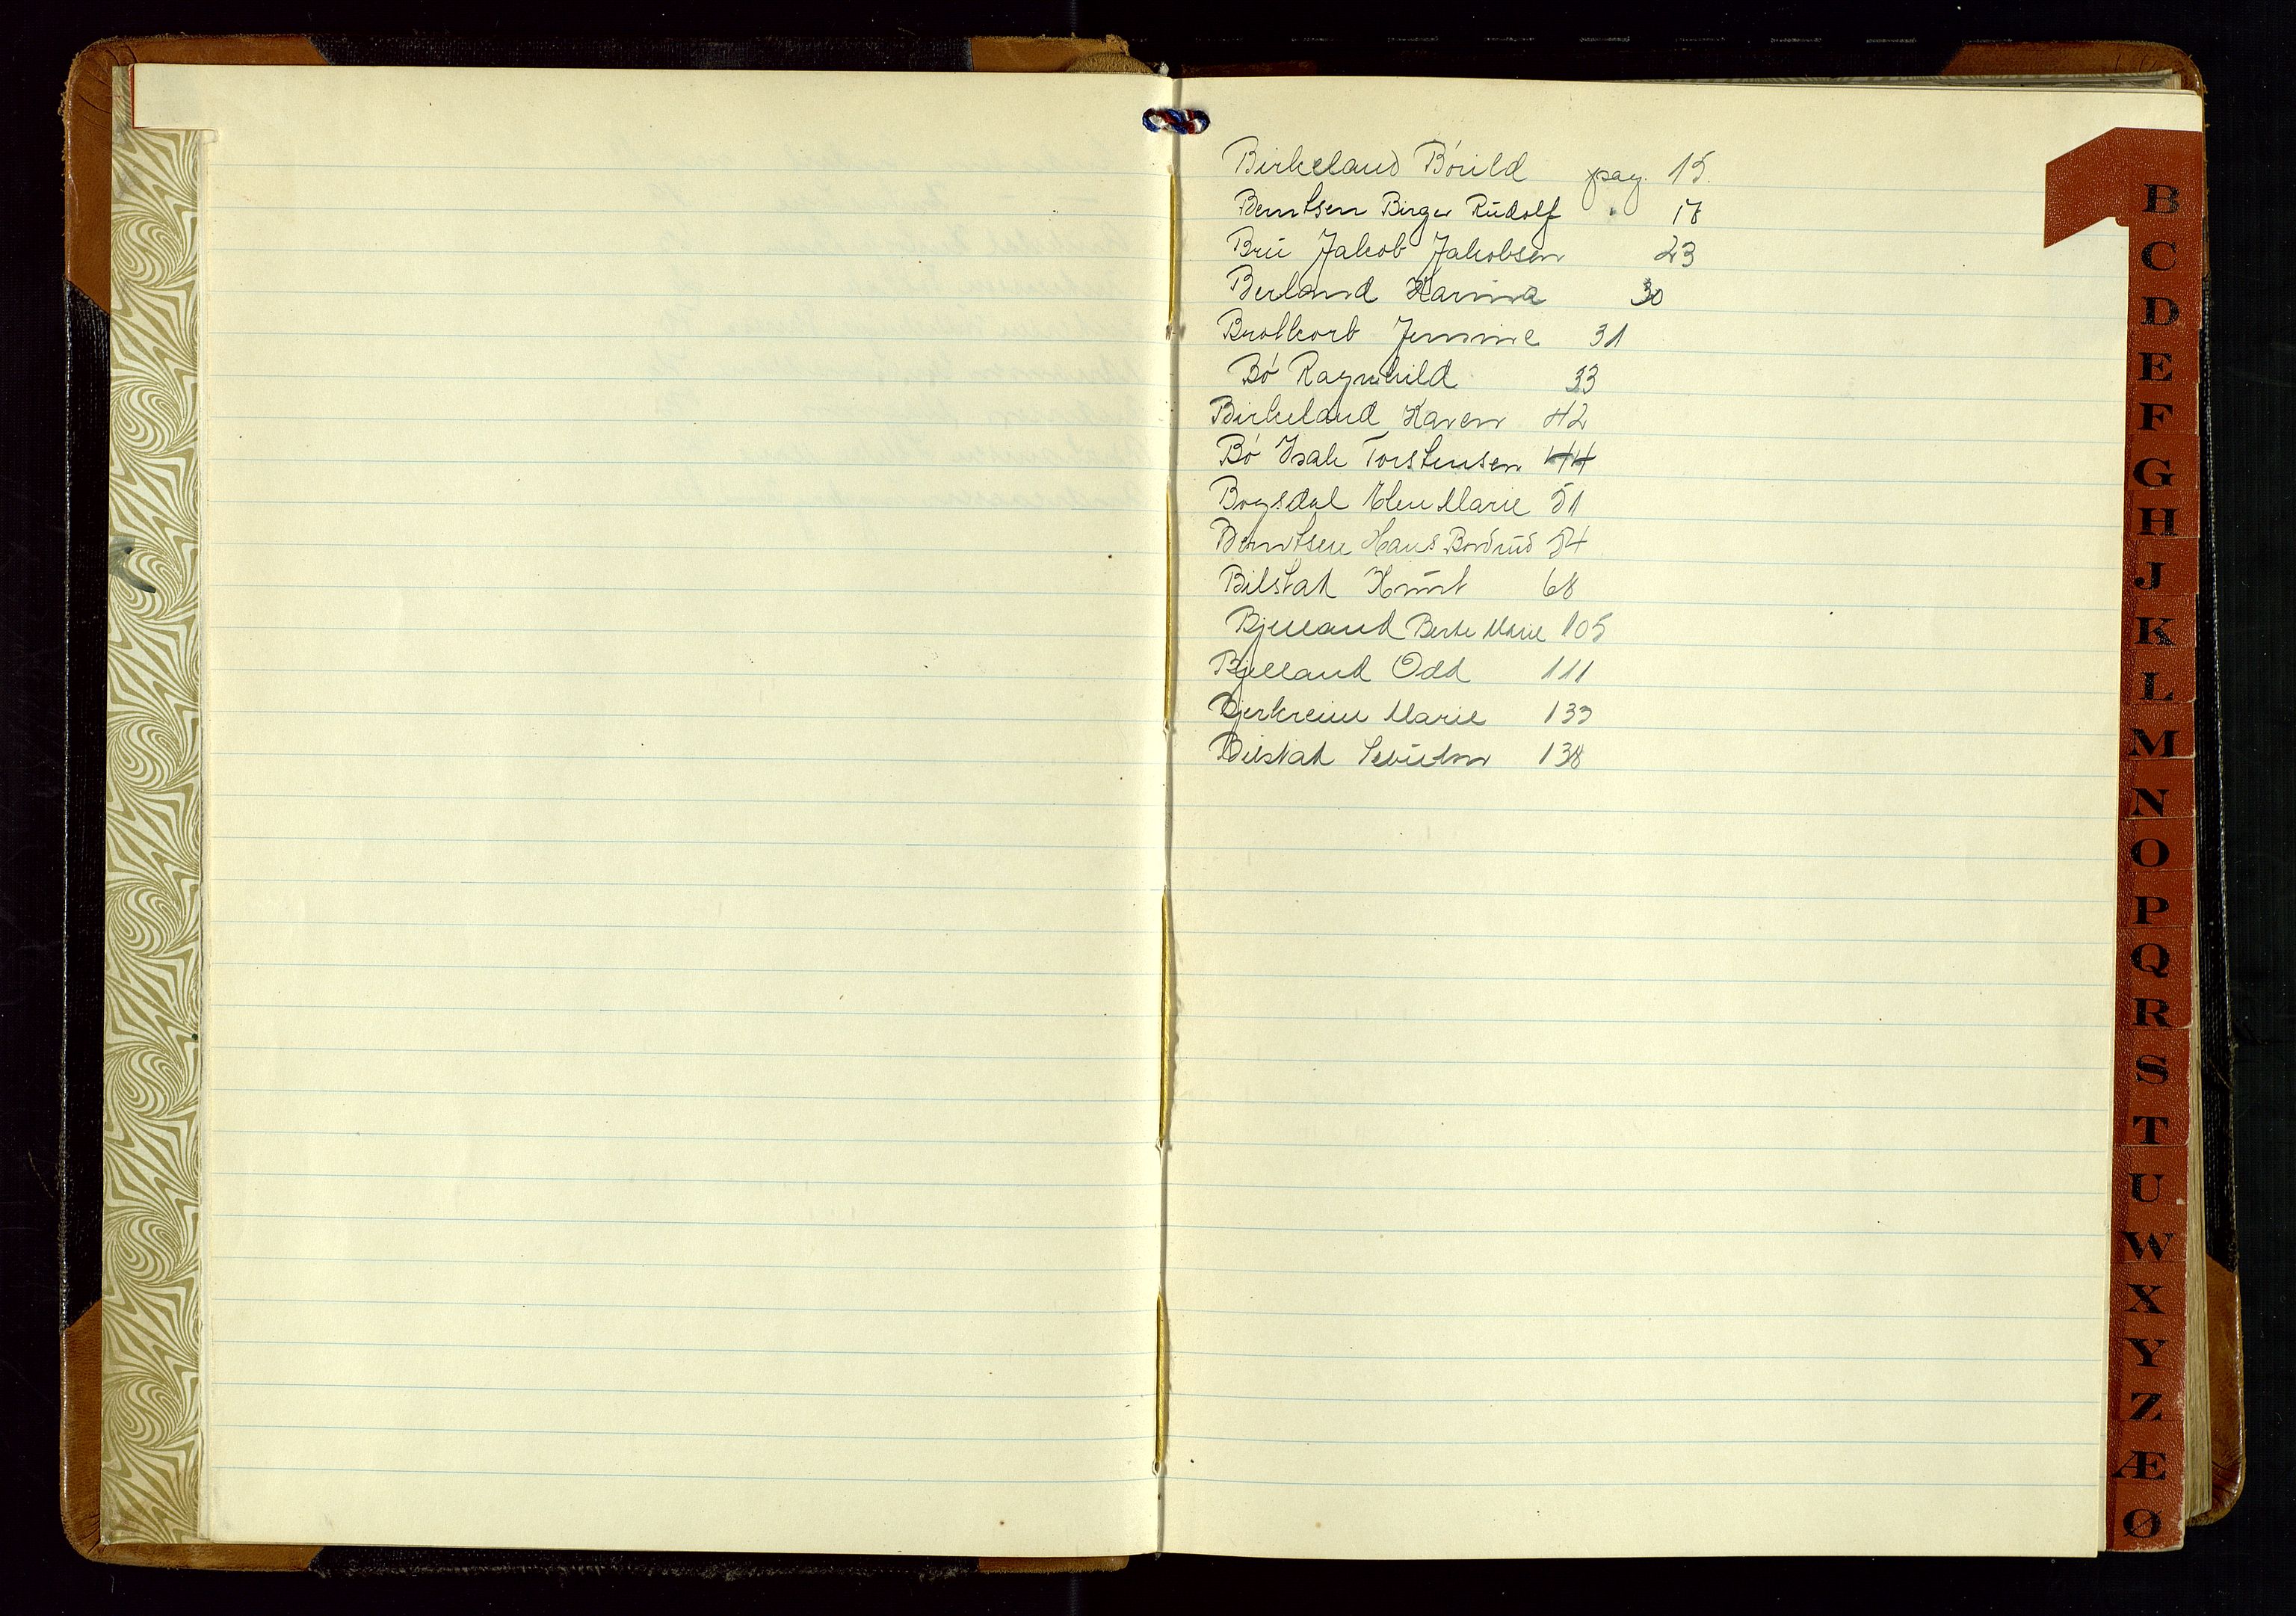 Birkeland Börild pag. 15.
Berntsen Birger Rudolf " 18
Bru Jakob Jakobsen 23
Berland Karina 30
Brotkorb Jennine 31
Bö Ragnhild 33
Birkeland Karen 42
Bö Isak Torstensen 44
Bogsdal Elen Marie 51
Berntsen Hans Bordrud 54
Bilstad Knut 68
Bjelland Berte Marie 105
Bjelland Odd 111
Bjerkreim Marie 133
Bilstad 138
B
C
D
E
F
G
H
J
K
L
M
N
O
P
Q
R
S
T
U
W
X
Y
Z
Æ
Ø